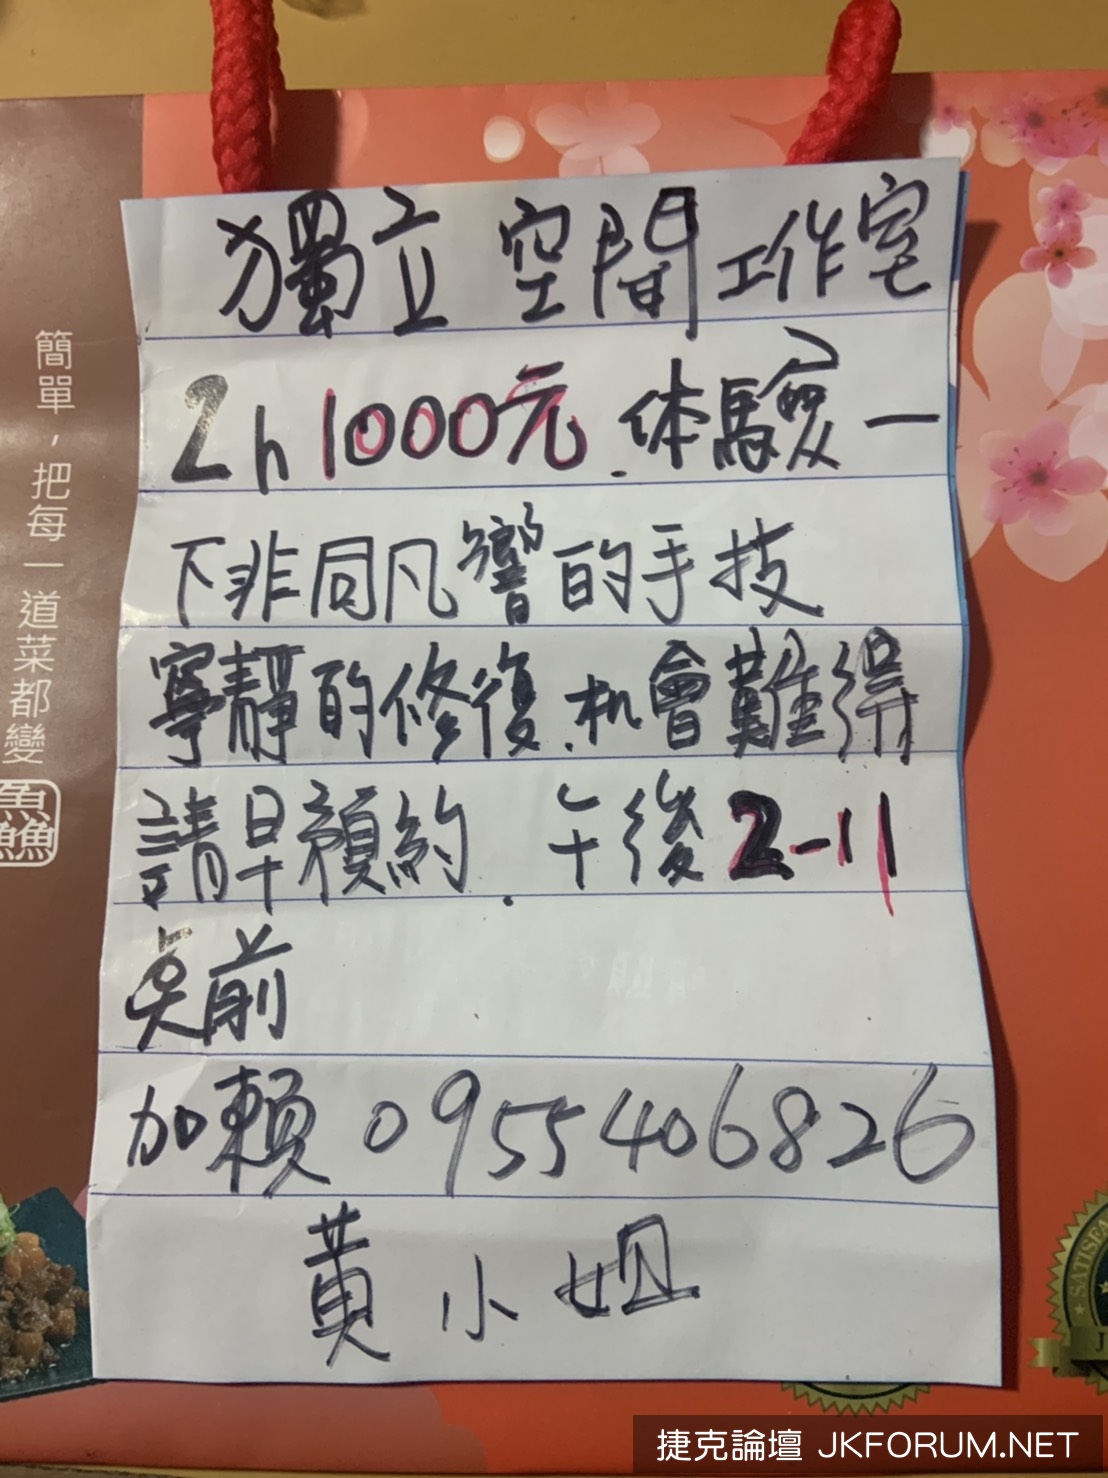 獨立空間工作室
2h 1000元.体驗一
下非同凡響的手技
寧靜的修復.机會難得
請早預約.午後2-11
点前
加賴0955406826
黃小姐
簡單,把每一道菜都變
捷克論壇 JKFORUM.NET